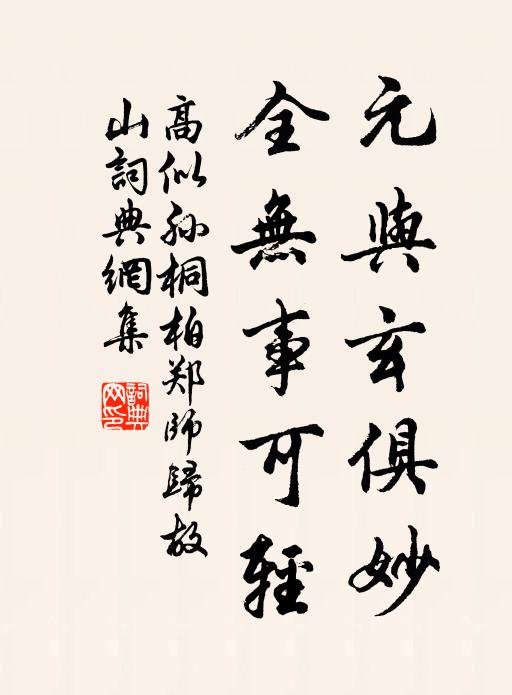 元與玄俱妙
全無事可輕
高似孙桐柏郑師歸故
山詞典網集
詞典
网印